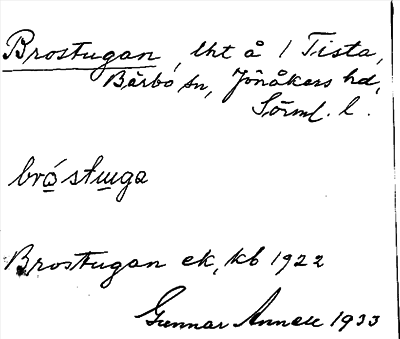 Brostugan, lht å 1 Tista,
Bärbo sn, Jönåkers hd,
Sörml. l.
brǫ́stu̲ga
Brostugan ek, kb 1922
Gunnar Annell 1933